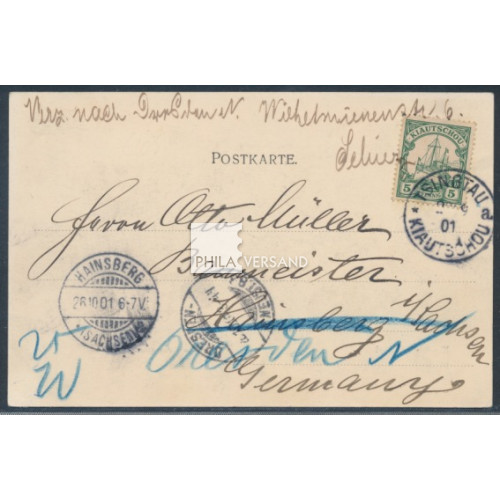 Verz. nach Dresden N. Wilhelminenstr. 6.
KIAUTSCHOU
5 5
POSTKARTE.
TSINGTAU
a
01
KIAUTSCHOU
Herrn Otto Müller
PHILA VERSAND
Baumeister
HAINSBERG
28.10.01 6-7V.
(SACHSEN)
Hainsberg i/Sachsen
Dresden N
Germany